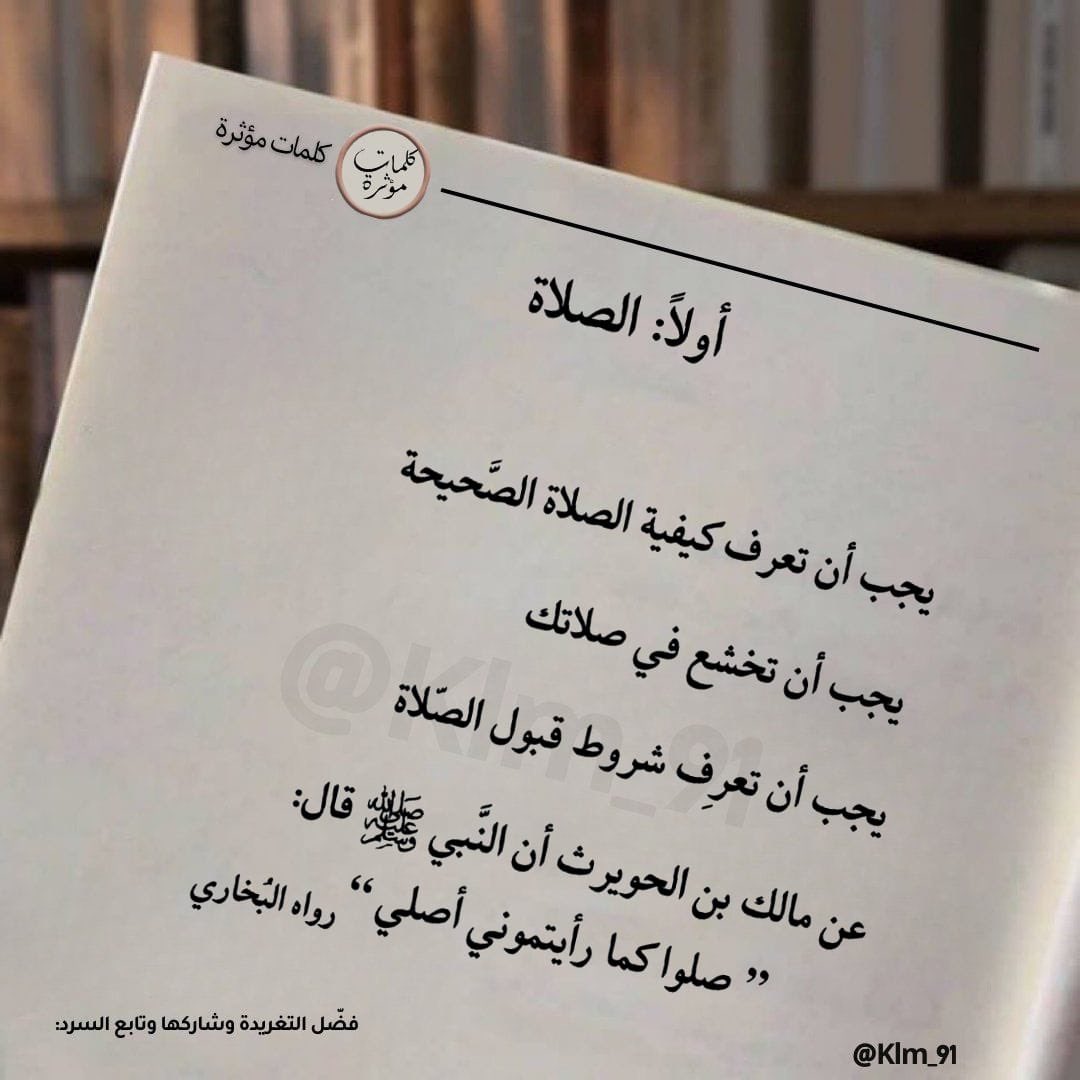 كلمات مؤثرة
كلمات
مؤثرة
أولاً: الصلاة
يجب أن تعرف كيفية الصلاة الصَّحيحة
يجب أن تخشع في صلاتك
يجب أن تعرِف شروط قبول الصّلاة
عن مالك بن الحويرث أن النَّبي ﷺ قال:
” صلوا كما رأيتموني أصلي “ رواه البُخاري
@Klm_91
فضّل التغريدة وشاركها وتابع السرد:
@Klm_91